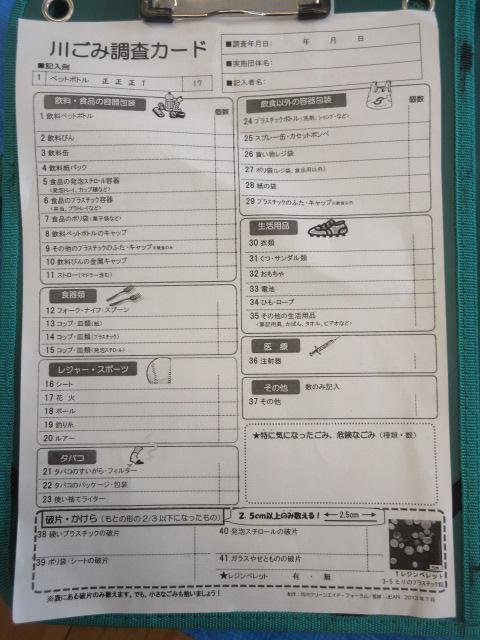 川ごみ調査カード
■調査年月日: 年 月 日
■実施団体名:
■記入者名:
■記入例
1 ペットボトル 正 正 正 丅 17
飲料・食品の容器包装 個数
1 飲料ペットボトル
2 飲料びん
3 飲料缶
4 飲料紙パック
5 食品の発泡スチロール容器
(発泡トレイ、カップ麺など)
6 食品のプラスチック容器
(弁当、プラトレイなど)
7 食品のポリ袋(菓子袋など)
8 飲料ペットボトルのキャップ
9 その他のプラスチックのふた・キャップ※飲食のみ
10 飲料びんの金属キャップ
11 ストロー(マドラー含む)
食器類
12 フォーク・ナイフ・スプーン
13 コップ・皿類(紙)
14 コップ・皿類(プラスチック)
15 コップ・皿類(発泡スチロール)
レジャー・スポーツ
16 シート
17 花 火
18 ボール
19 釣り糸
20 ルアー
タバコ
21 タバコのすいがら・フィルター
22 タバコのパッケージ・包装
23 使い捨てライター
飲食以外の容器包装 個数
24 プラスチックボトル(洗剤、シャンプーなど)
25 スプレー缶・カセットボンベ
26 買い物レジ袋
27 ポリ袋(レジ袋、食品用以外)
28 紙の袋
29 プラスチックのふた・キャップ※飲食以外
生活用品
30 衣類
31 くつ・サンダル類
32 おもちゃ
33 電池
34 ひも・ロープ
35 その他の生活用品
(筆記用具、かばん、タオル、ビデオなど)
医 療
36 注射器
その他 数のみ記入
37 その他
★特に気になったごみ、危険なごみ(種類・数)
破片・かけら(もとの形の2/3以下になったもの)
2.5cm以上のみ数える! 2.5cm
38 硬いプラスチックの破片
39 ポリ袋・シートの破片
40 発泡スチロールの破片
41 ガラスやせとものの破片
★レジンペレット 有 ・ 無
↑レジンペレット
3-5ミリのプラスチック粒
※表にある破片のみ数えます。でも、小さなごみも拾いましょう!
制作:荒川クリーンエイド・フォーラム/監修:JEAN 2013年7月